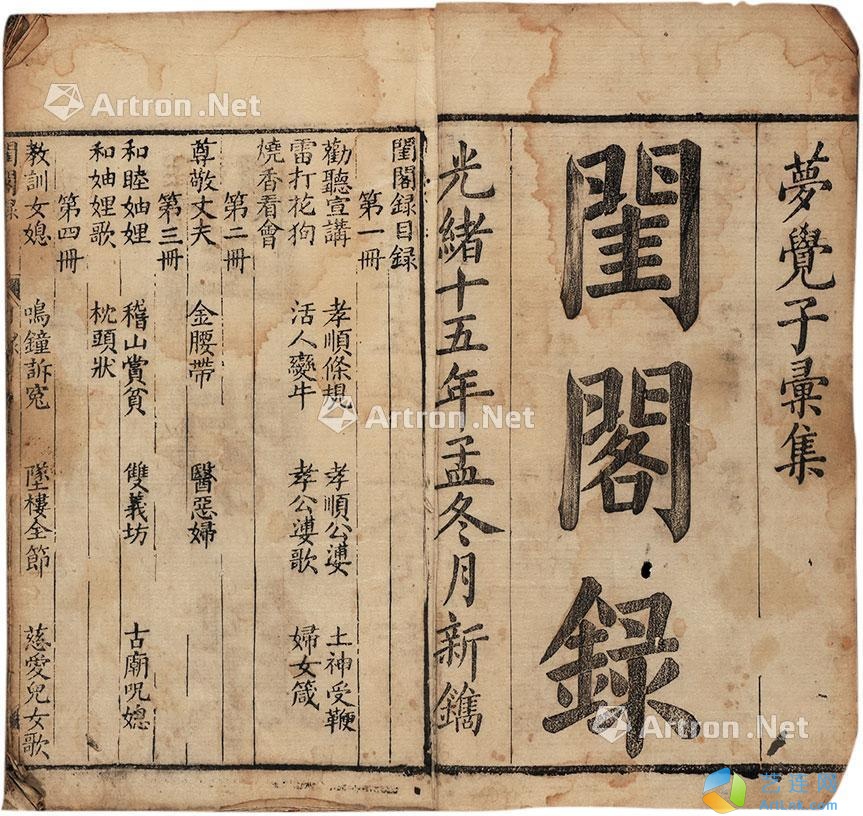 夢覺子彙集
閨閣録
光緒十五年孟冬月新鐫
閨閣録目録
第一冊
勸聽宣講 孝順條規 孝順公婆 土神受鞭
雷打花狗 活人變牛 孝公婆歌 婦女箴
燒香看會
第二冊
尊敬丈夫 金腰帶 醫惡婦
第三冊
和睦妯娌 稽山賞貧 雙義坊 古廟呪媳
和妯娌歌 枕頭狀
第四冊
教訓女媳 鳴鐘訴冤 墜樓全節 慈愛兒女歌
閨閣録
Artron.Net
Artron.Net
Artron.Net
艺连网
ArtLnk.Com